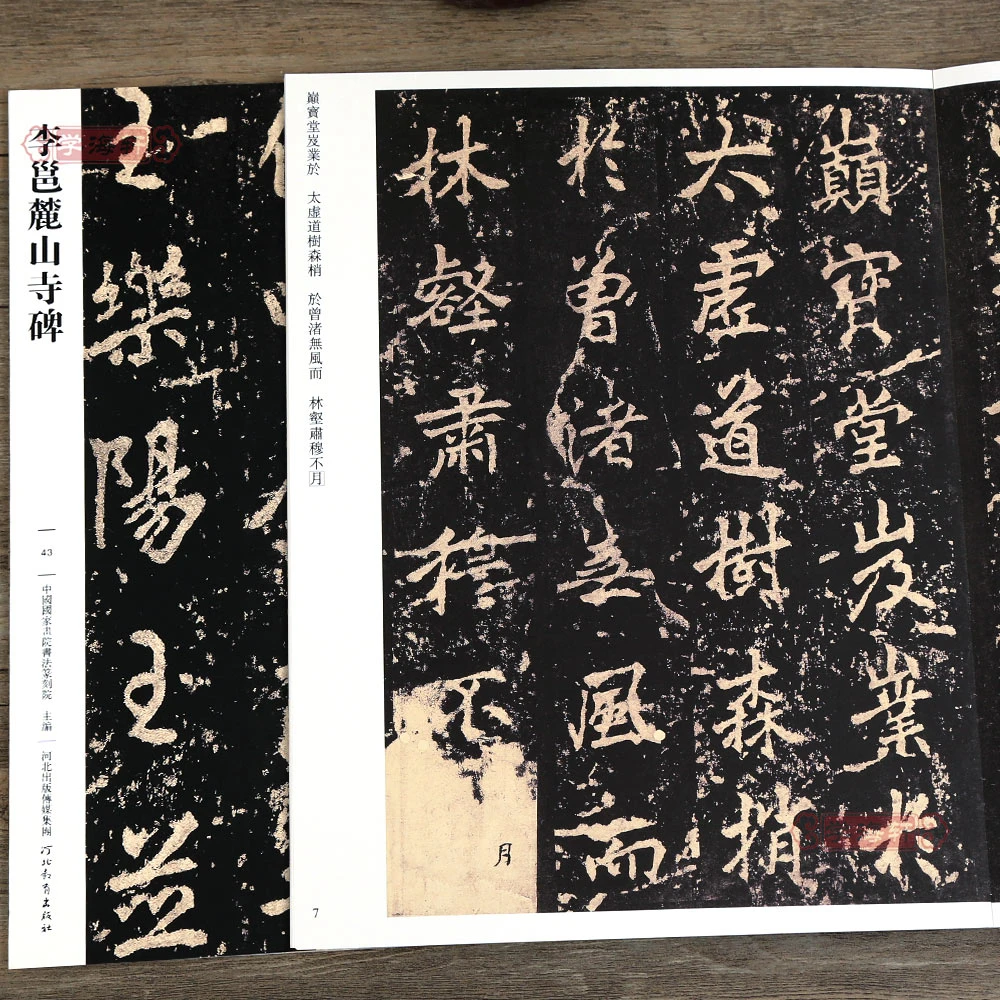 李邕麓山寺碑
43
中國國家畫院書法篆刻院 主編
河北出版傳媒集團 河北教育出版社
主樂陽王並
巔寶堂岌業於 太虛道樹森梢 於曾渚無風而 林壑肅穆不月
7
巔寶堂岌業於
太虛道樹森梢
於曾渚無風而
林壑肅穆不
月